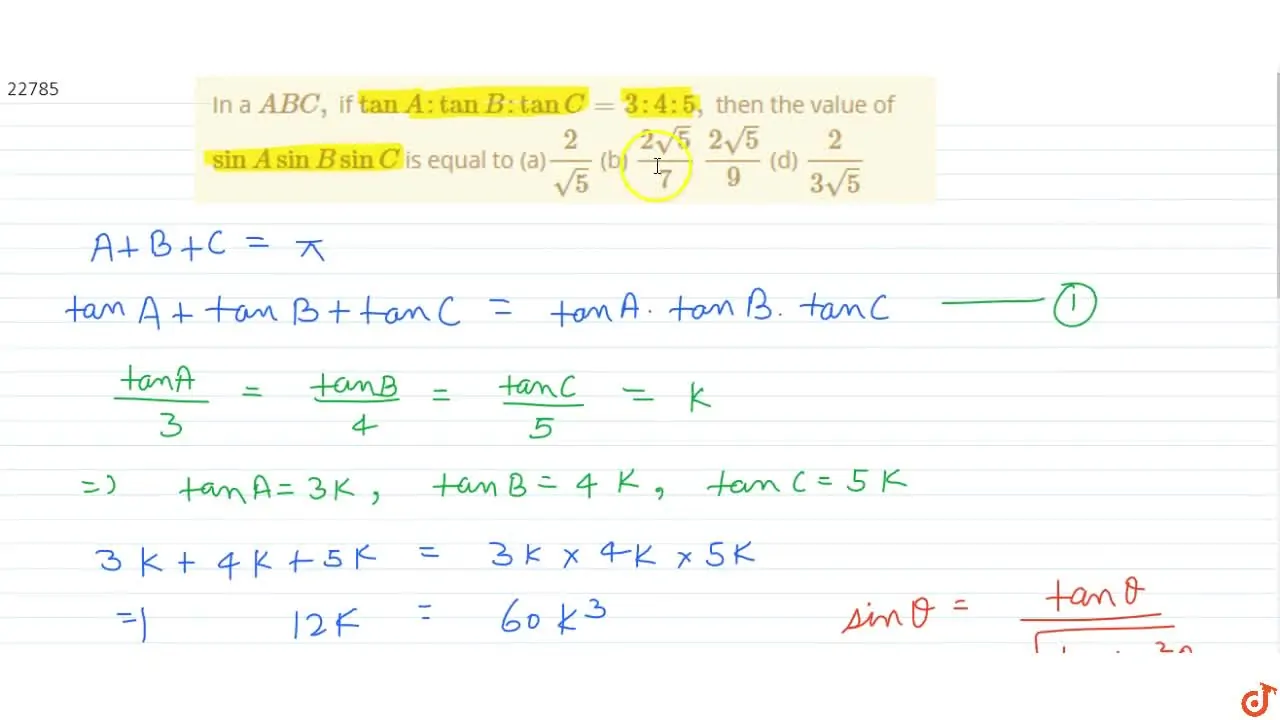 22785
In a ABC, if tan A : tan B : tan C = 3 : 4 : 5, then the value of
sin A sin B sin C is equal to (a) 2/√5 (b) 2√5/7 2√5/9 (d) 2/3√5
A + B + C = π
tan A + tan B + tan C = tan A · tan B · tan C ——— ①
tanA/3 = tanB/4 = tanC/5 = K
=> tan A = 3K, tan B = 4K, tan C = 5K
3K + 4K + 5K = 3K × 4K × 5K
=> 12K = 60K³
sinθ = tanθ/√